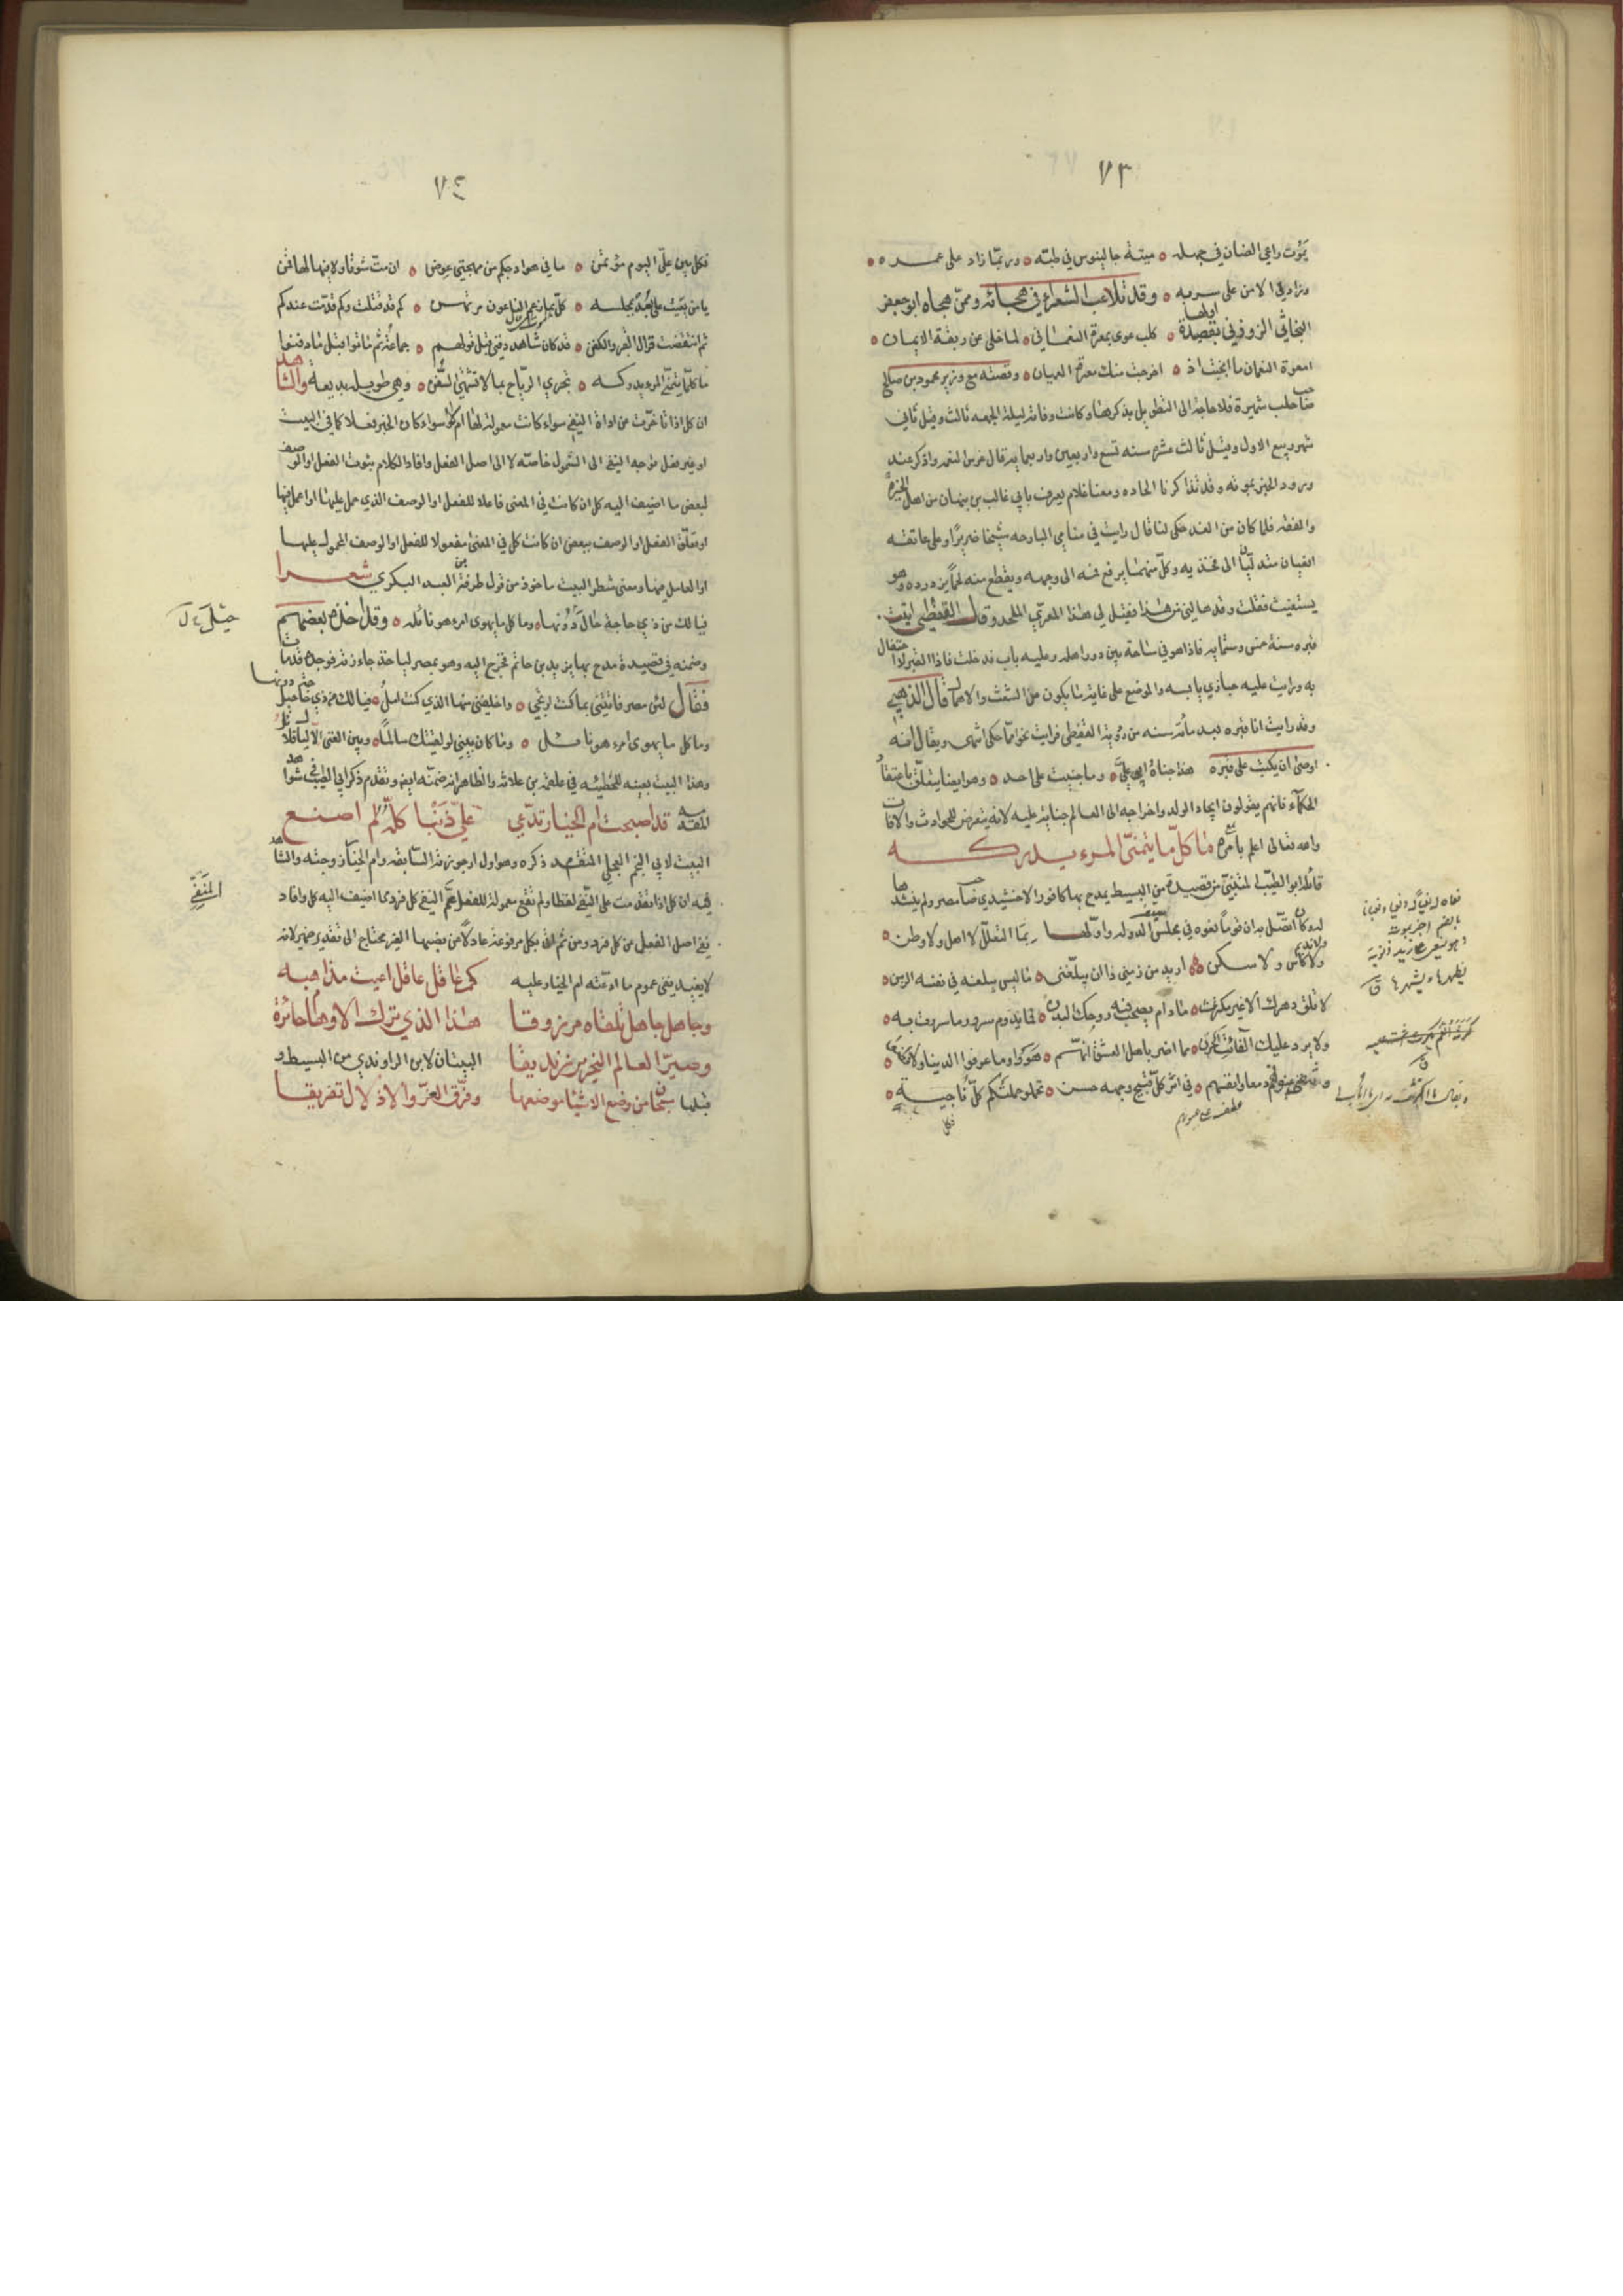 ٧٣
يموت راعي الضان في جهله ۞ ميتة جالينوس في طبه ۞ وربما زاد على عمره ۞
وزاد في الامن على سربه ۞ وقد تلاعب الشعراء في هجائه وممن هجاه ابو جعفر
البحاثي الزوزني بقصيدة اولها ۞ كلب عوى بمعرة النعمان ۞ لما خلى عن ربقة الايمان ۞
امعرة النعمان ما انجبت اذ ۞ اخرجت منك معرة العميان ۞ وقصته مع وزير محمود بن صالح
صاحب حلب شهيرة فلا حاجة الى التطويل بذكرها وكانت وفاته ليلة الجمعه ثالث وقيل ثاني
شهر ربيع الاول وقيل ثالث عشره سنه تسع واربعين واربعمايه قال غرس النعمه واذكر عند
ورود الخبر بموته وقد تذاكرنا الحاده ومعنا غلام يعرف بابي غالب بن نبهان من اهل الخير
والفقه فلما كان من الغد حكى لنا قال رايت في منامي البارحه شيخا ضريرا وعلى عاتقه
افعيان متدليان الى فخذيه وكل منهما يرفع فمه الى وجهه ويقطع منه لحما يزدرده وهو
يستغيث فقلت وقد هالني من هذا فقيل لي هذا المعري الملحد وقال القفطي اتيت
قبره سنة خمس وستمايه فاذا هو في ساحة بين دور اهله وعليه باب فدخلت فاذا القبر لا احتفال
به ورايت عليه خبازي يابسه والموضع على غاية ما يكون من الشعث والاهمال قال الذهبي
وقد رايت انا قبره بعد مائة سنه من رؤية القفطي فرايت نحوا مما حكى انتهى ويقال انه
اوصى ان يكتب على قبره هذا جناه ابي علي ۞ وما جنيت على احد ۞ وهو ايضا يتعلق باعتقاد
الحكماء فانهم يقولون ايجاد الولد واخراجه الى العالم جناية عليه لانه يتعرض للحوادث والافات
والله تعالى اعلم بامره ما كل ما يتمنى المرء يدركه
قائله ابو الطيب المتنبي من قصيدة من البسيط يمدح بها كافور الاخشيدي صاحب مصر ولم ينشدها
له وكان اتصل به ان قوما نعوه في مجلس سيف الدوله واولها بما التعلل لا اهل ولا وطن ۞
ولا نديم ولا كاس ولا سكن ۞ اريد من زمني ذا ان يبلغني ۞ ما ليس يبلغه في نفسه الزمن ۞
لا تلق دهرك الا غير مكترث ۞ ما دام يصحب فيه روحك البدن ۞ فما يدوم سرور ما سررت به ۞
ولا يرد عليك الفائت الحزن ۞ مما اضر باهل العشق انهم ۞ هووا وما عرفوا الدنيا ولا فطنوا ۞
تفنى عيونهم دمعا وانفسهم ۞ في اثر كل قبيح وجهه حسن ۞ تحملوا حملتكم كل ناجية ۞
فكل
٧٤
فكل بين علي اليوم مؤتمن ۞ ما في هوادجكم من مهجتي عوض ۞ ان مت شوقا ولا فيها لها ثمن
يا من نعيت على بعد بمجلسه ۞ كل بما زعم الناعون مرتهن ۞ كم قد قتلت وكم قد مت عندكم
ثم انتفضت فزال القبر والكفن ۞ قد كان شاهد دفني قبل قولهم ۞ جماعة ثم ماتوا قبل من دفنوا
ما كل ما يتمنى المرء يدركه ۞ تجري الرياح بما لا تشتهي السفن ۞ وهي طويله بديعة والشاهد
ان كل اذا تاخرت عن اداة النفي سواء كانت معمولة لها ام لا وسواء كان الخبر فعلا كما في البيت
او غير فعل توجه النفي الى الشمول خاصه لا الى اصل الفعل وافاد الكلام ثبوت الفعل او الوصف
لبعض ما اضيف اليه كل ان كانت في المعنى فاعلا للفعل او الوصف الذي حمل عليها او اعمل فيها
او تعلق الفعل او الوصف ببعض ان كانت كل في المعنى مفعولا للفعل او الوصف المحمول عليها
او العامل فيها ومعنى شطر البيت ماخوذ من قول طرفة بن العبد البكري شعرا
فيالك من ذي حاجة حال دونها ۞ وما كل ما يهوى امرء هو نائله ۞ وقد اخذه بعضهم
وضمنه في قصيدة مدح بها يزيد بن حاتم فخرج اليه وهو بمصر لياخذ جائزته فوجده قد مات
فقال لئن مصر فاتتني بما كنت ارتجي ۞ واخلفني منها الذي كنت امل ۞ فيالك من ذي حاجة حيل دونها
وما كل ما يهوى امرء هو نائل ۞ وما كان بيني لو لقيتك سالما ۞ وبين الغنى الا ليال قلائل
وهذا البيت بعينه للحطيئه في علقمة بن علاثه والظاهر انه ضمنه ايضا وتقدم ذكر ابي الطيب في شواهد
المقدمه قد اصبحت ام الخيار تدعي علي ذنبا كله لم اصنع
البيت لابي النجم العجلي المتقدم ذكره وهو اول ارجوزته السابقه وام الخيار زوجته والشاهد
فيه ان كل اذا تقدمت على النفي لفظا ولم تقع معمولة للفعل عم النفي كل فرد مما اضيف اليه كل وافاد
نفي اصل الفعل عن كل فرد ومن ثم اتى بكل مرفوعة عادلا عن نصبها الغير محتاج الى تقدير ضمير لانه
لا يفيد نفي عموم ما ادعته ام الخيار عليه كم عاقل عاقل اعيت مذاهبه
وجاهل جاهل تلقاه مرزوقا هذا الذي ترك الاوهام حائرة
وصير العالم النحرير زنديقا البيتان لابن الراوندي من البسيط و
قبلهما سبحان من وضع الاشيا موضعها وفرق العز والاذلال تفريقا